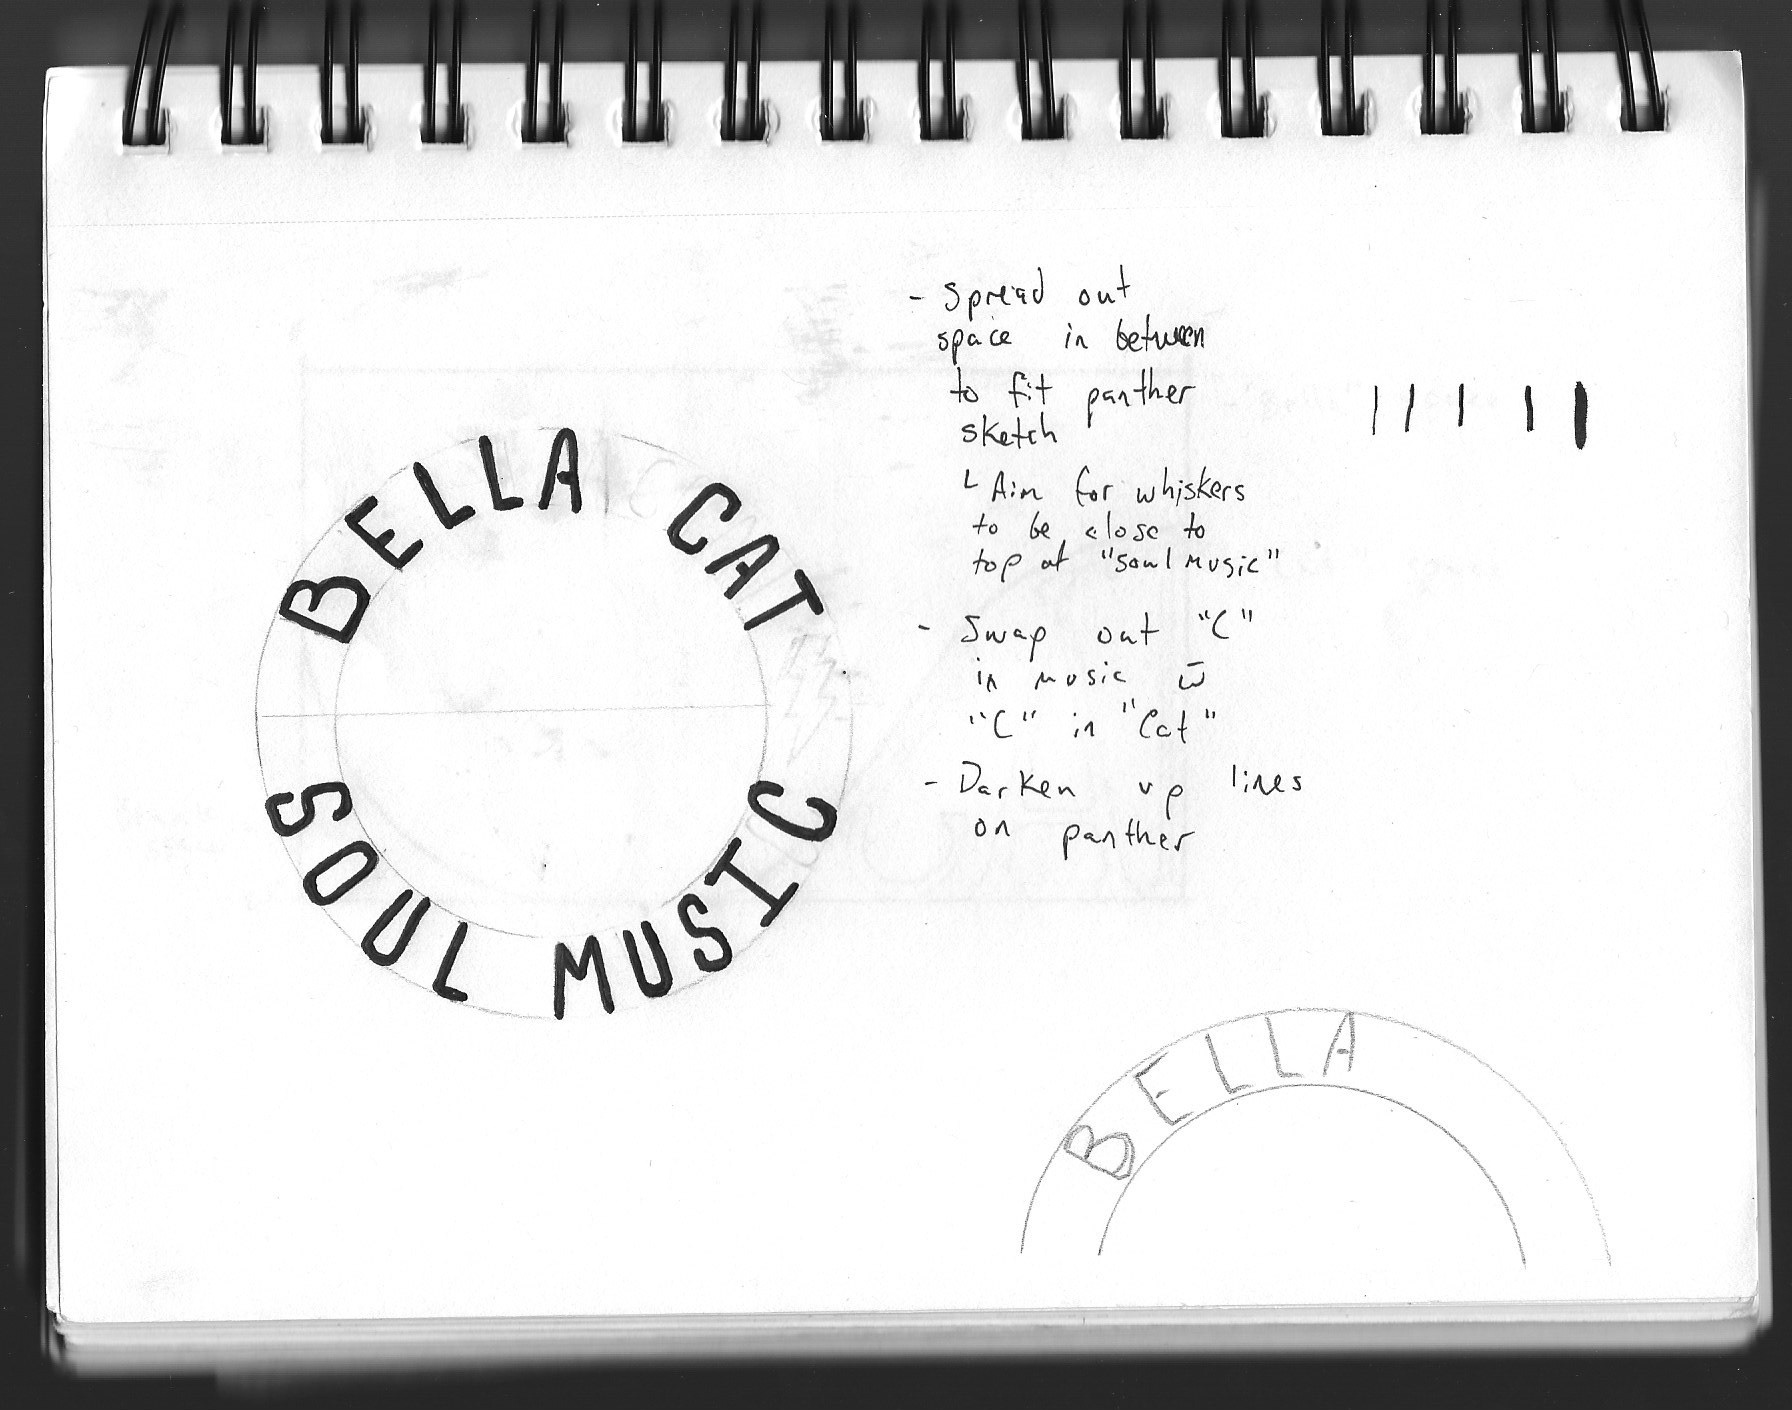 BELLA CAT
SOUL MUSIC
- Spread out
space in between
to fit panther
sketch
└ Aim for whiskers
to be close to
top of "Soul Music"
- Swap out "C"
in music w̄
"C" in "Cat"
- Darken up lines
on panther
BELLA